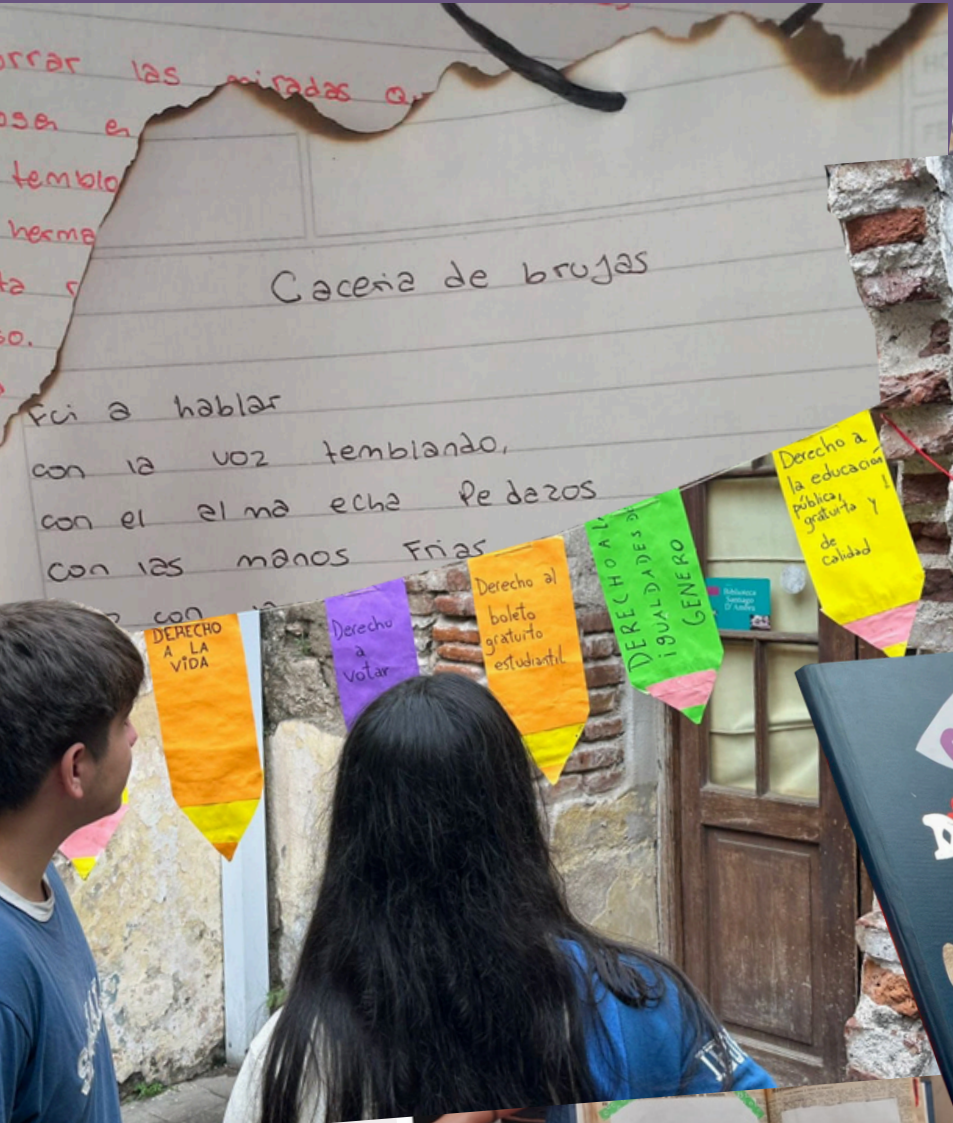 las miradas
en
Caceria de brujas
Fui a hablar
con la voz temblando,
con el alma echa Pedazos
con las manos Frias
con
DERECHO
A LA
VIDA
Derecho
a
votar
Derecho al
boleto
gratuito
estudiantil
DERECHO A LA
iGUALDADES DE
GENERO
Derecho a
la educación
pública,
gratuita y
de
calidad
Biblioteca
Santiago
D'Ambra